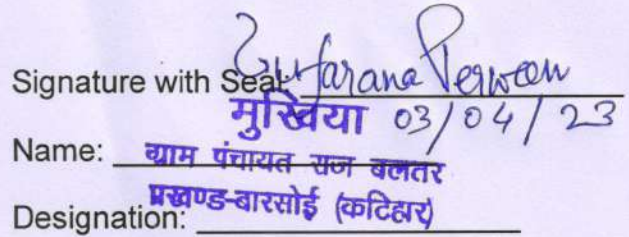 Signature with Seal: Gufarana Perween
मुखिया 03/04/23
Name: ग्राम पंचायत राज बलतर
प्रखण्ड-बारसोई (कटिहार)
Designation: